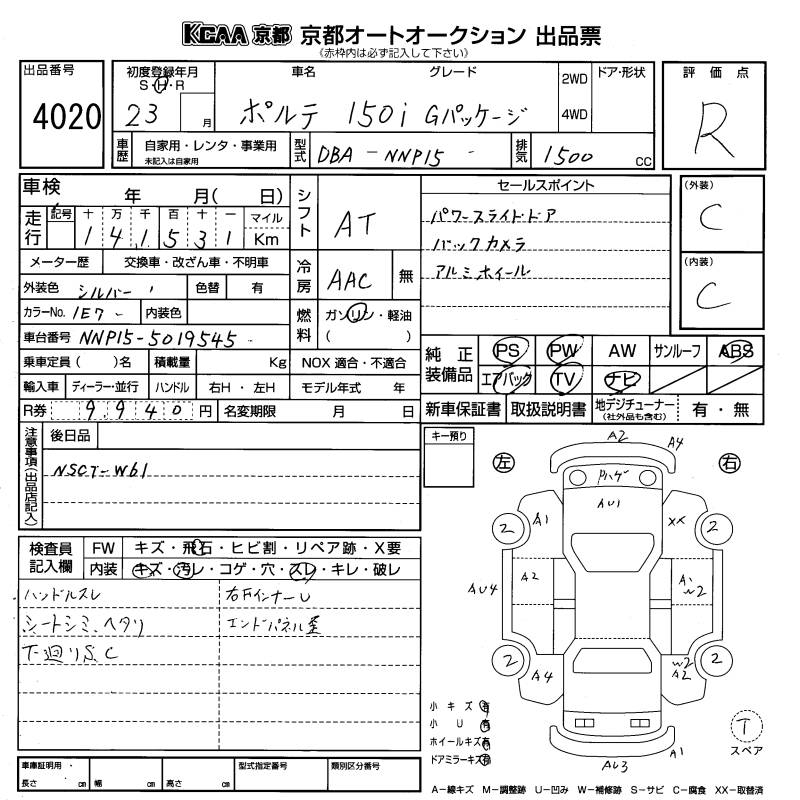 KCAA 京都 京都オートオークション 出品票
(赤枠内は必ず記入して下さい)
出品番号 4020
初度登録年月 S・H・R 23 月
車名 グレード ポルテ 150i Gパッケージ
2WD 4WD ドア・形状
評価点 R
車歴 自家用・レンタ・事業用 未記入は自家用
型式 DBA-NNP15
排気 1500 CC
車検 年 月( 日)
シフト AT
セールスポイント
パワースライドドア
バックカメラ
アルミホイール
(外装) C
(内装) C
走行 記号 十 万 千 百 十 一 マイル
1 4 1 5 3 1 Km
メーター歴 交換車・改ざん車・不明車
冷房 AAC 無
外装色 シルバー 色替 有
カラーNo. 1E7 内装色
燃料 ガソリン・軽油 ( )
車台番号 NNP15-5019545
乗車定員( )名 積載量 Kg NOX 適合・不適合
輸入車 ディーラー・並行 ハンドル 右H・左H モデル年式 年
R券 9940円 名変期限 月 日
純正装備品 PS PW AW サンルーフ ABS
エアバック TV ナビ
新車保証書 取扱説明書 地デジチューナー (社外品も含む) 有・無
注意事項(出品店記入) 後日品
NSCT-W61
キー預り
左 右
検査員記入欄 FW キズ・飛石・ヒビ割・リペア跡・X要
内装 キズ・汚レ・コゲ・穴・スレ・キレ・破レ
ハンドルスレ 右FインナーU
シートシミ、ヘタリ エンドパネル歪
下廻りS、C
A2 A4
ハゲ
AU1
2 A1 XX 2
AU4 A2 A1 W2
2 A4 W2 A2 2
AU3 A1
小キズ 有
小U 有
ホイールキズ有
ドアミラーキズ有
T スペア
車庫証明用 長さ cm 幅 cm 高さ cm 型式指定番号 類別区分番号
A-線キズ M-調整跡 U-凹み W-補修跡 S-サビ C-腐食 XX-取替済